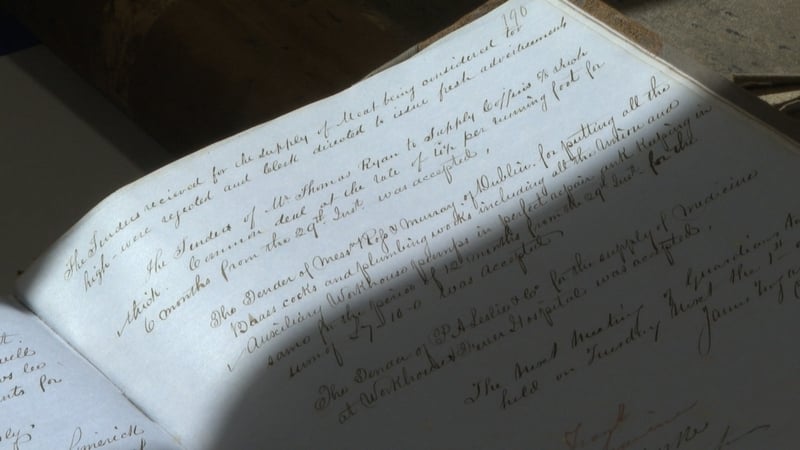 190
The Tenders received for the supply of Meat being considered too
high - were rejected and Clerk directed to issue fresh advertisements
The Tender of Mr Thomas Ryan to Supply Coffins
thick. Common deal at the rate of per running foot for
6 months from the 29th Inst was accepted,
The Tender of Messrs & Murray of Dublin. for putting all the
Brass cocks and plumbing works including all the Union and
Auxiliary Workhouse pumps in perfect repair and Keeping in
same for the period of 12 months from the 29th Inst. for the
sum of £7-10-0 was accepted.
The Tender of P. A Leslie & Co. for the supply of Medicine
at Workhouse & Fever Hospitals was accepted.
The next meeting of Guardians to
held on Tuesday next the 1st
James
for
Limerick